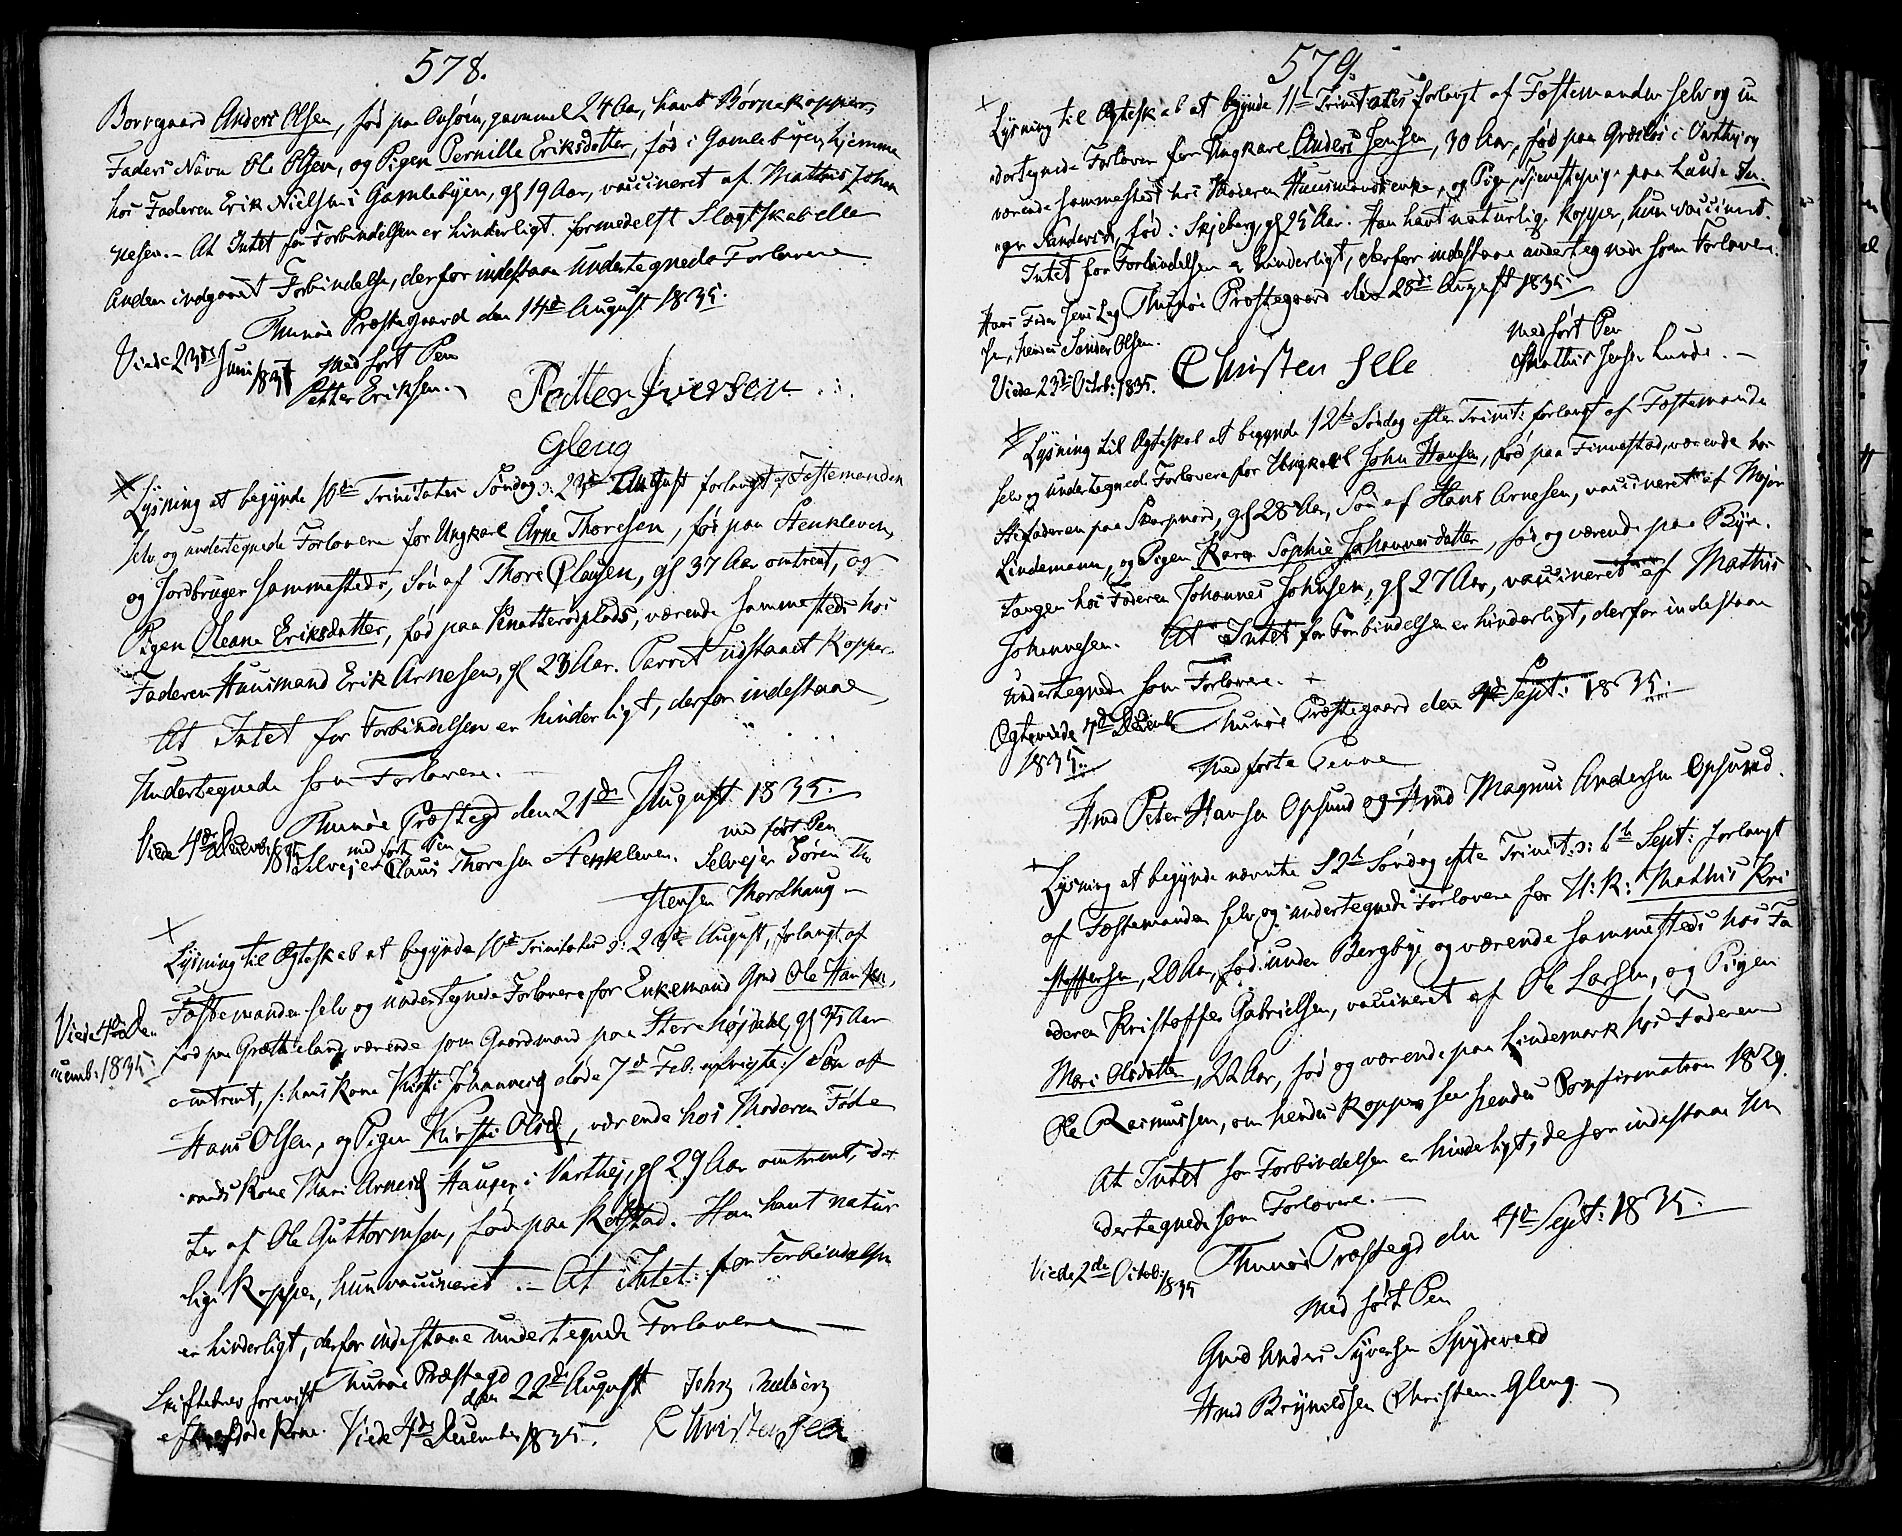 578.
Borregaard Anders Olsen, fød paa Onsøen, gammel 24 Aar, havt Børnekopper,
Faders Navn Ole Olsen, og Pigen Pernille Eriksdatter, fød i Gamlebyen, hjemme
hos Faderen Erik Nielsen i Gamlebyen, gl 19 Aar, vaccineret af Mathis Johan
nesen. – At Intet for Forbindelsen er hinderligt formedelst Slægtskab elle
anden indgaaet Forbindelse, derfor indestaae undertegnede Forlovere
Thunøe Præstegaard den 14de August 1835.
Viede 23de Juni 1837
med ført Pen
Petter Eriksen. –
Petter Iversen
Gleng
Lysning at begynde 10de Trinitates Søndag ɔ: 23de August forlangt af Fæstemanden
selv og undertegnede Forlovere for Ungkarl Arne Thoresen, fød paa Stenkleven,
og Jordbruger sammesteds, Søn af Thore Clausen, gl 37 Aar omtrent, og
Pigen Oleane Eriksdatter, fød paa Knatterødplads, værende sammesteds hos
Faderen Huusmand Erik Arnesen, gl 23 Aar. Parret udstaaet Kopper.
At Intet for Forbindelsen er hinderligt, derfor indestaae
Undertegnede som Forlovere. –
Thunøe Præstegd den 21de August 1835.
Viede 4de Decemb: 1835
med ført Pen
med ført Pen
Selvejer Claus Thoresen Stenkleven. Selvejer Søren Th
stensen Nordhaug –
Lysning til Ægteskab at begynde 10de Trinitatis ɔ: 23de August, forlangt af
Fæstemanden selv og undertegnede Forlovere for Enkemand Grd Ole Hansen,
Viede 4de De
cemb: 1835
fød paa Græthland værende som Gaardmand paa Store højdahl, gl 35 Aar
omtrent, /: hans Kone Kirsti Johannesd døde 7de Feb. :/ Søn af
Hans Olsen, og Pigen Kirsti Olsd, værende hos Moderen Føde
raads Kone Mari Arnesd Haugen i Varthej, gl 29 Aar omtrent, Dat
ter af Ole Guttormsen, fød paa Kolstad. Han havt natur
lige Kopper, hun vaccineret. – At Intet for Forbindelsen
er hinderligt, derfor indestaae undertegnede Forlovere –
Thunøe Præstegd
den 22de August
Skiftebrev forevist
efter døde Kone. Viede 4de December 1835.
Christen Elle
579.
Lysning til Ægteskab at begynde 11te Trinitates forlangt af Fæstemanden selv og un
dertegnede Forlovere for Ungkarl Anders Jensen, 30 Aar, fød paa Græsløs i Varthej og
værende sammesteds hos Moderen Huusmandsenke, og Pige, Tjenestepige paa Lande In
ger Sandersd, fød i Skjeberg, gl 25 Aar. Han havt naturlige Kopper, hun vaccineret.
Intet for Forbindelsen er hinderligt, derfor indestaae undertegnede som Forlovere.
Thunøe Præstegaard den 28de August 1835
Hans Fader Jens
hendes Sander Olsen.
Viede 23de Octob: 1835.
Christen Elle
med ført Pen
Mathis Jensen Lunde. –
Lysning til Ægteskab at begynde 12te Søndag efter Trinit: forlangt af Fæstemande
selv og undertegnede Forlovere for Ungkarl John Hansen, fød paa Finnestad, værende hos
Stefaderen paa Skarpnord, gl 28 Aar, Søn af Hans Arnesen, vaccineret af Major
Lindemann, og Pigen Karen Sophie Johannesdatter, fød og værende paa Bÿe.
tangen hos Faderen Johannes Johnsen, gl 27 Aar, vaccineret af Mathis
Johannesen. At Intet for Forbindelsen er hinderligt, derfor indestaae
undertegnede som Forlovere. –
Thunøe Præstegaard den 4de Sept: 1835.
Ægteviede 7de Decemb
1835.
med førte Penne
Hmd Peter Hansen Opsund og Hmd Magnus Andersen Opsund.
Lysning at begynde nævnte 12te Søndag efter Trinit: ɔ: 6te Sept: forlangt
af Fæstemanden selv og undertegnede Forlovere for U: K: Mathis Kri
stoffersen, 20 Aar, fød under Bergbye og værende sammesteds hos Fa
deren Kristoffer Gabrielsen, vaccineret af Ole Larsen, og Pigen
Mari Olsdatter, 22 Aar, fød og værende paa Lindemark hos Faderen
Ole Rasmussen, om hendes Kopper see hendes Confirmation 1829.
At Intet for Forbindelsen er hinderligt, derfor indestaae un
dertegnede som Forlovere. –
Thunøe Præstegd den 4de Sept: 1835.
Viede 2de Octob: 1835
med ført Pen
Grd Anders Syversen Spydeveld
Hmd Brynildsen Christen Gleng. –